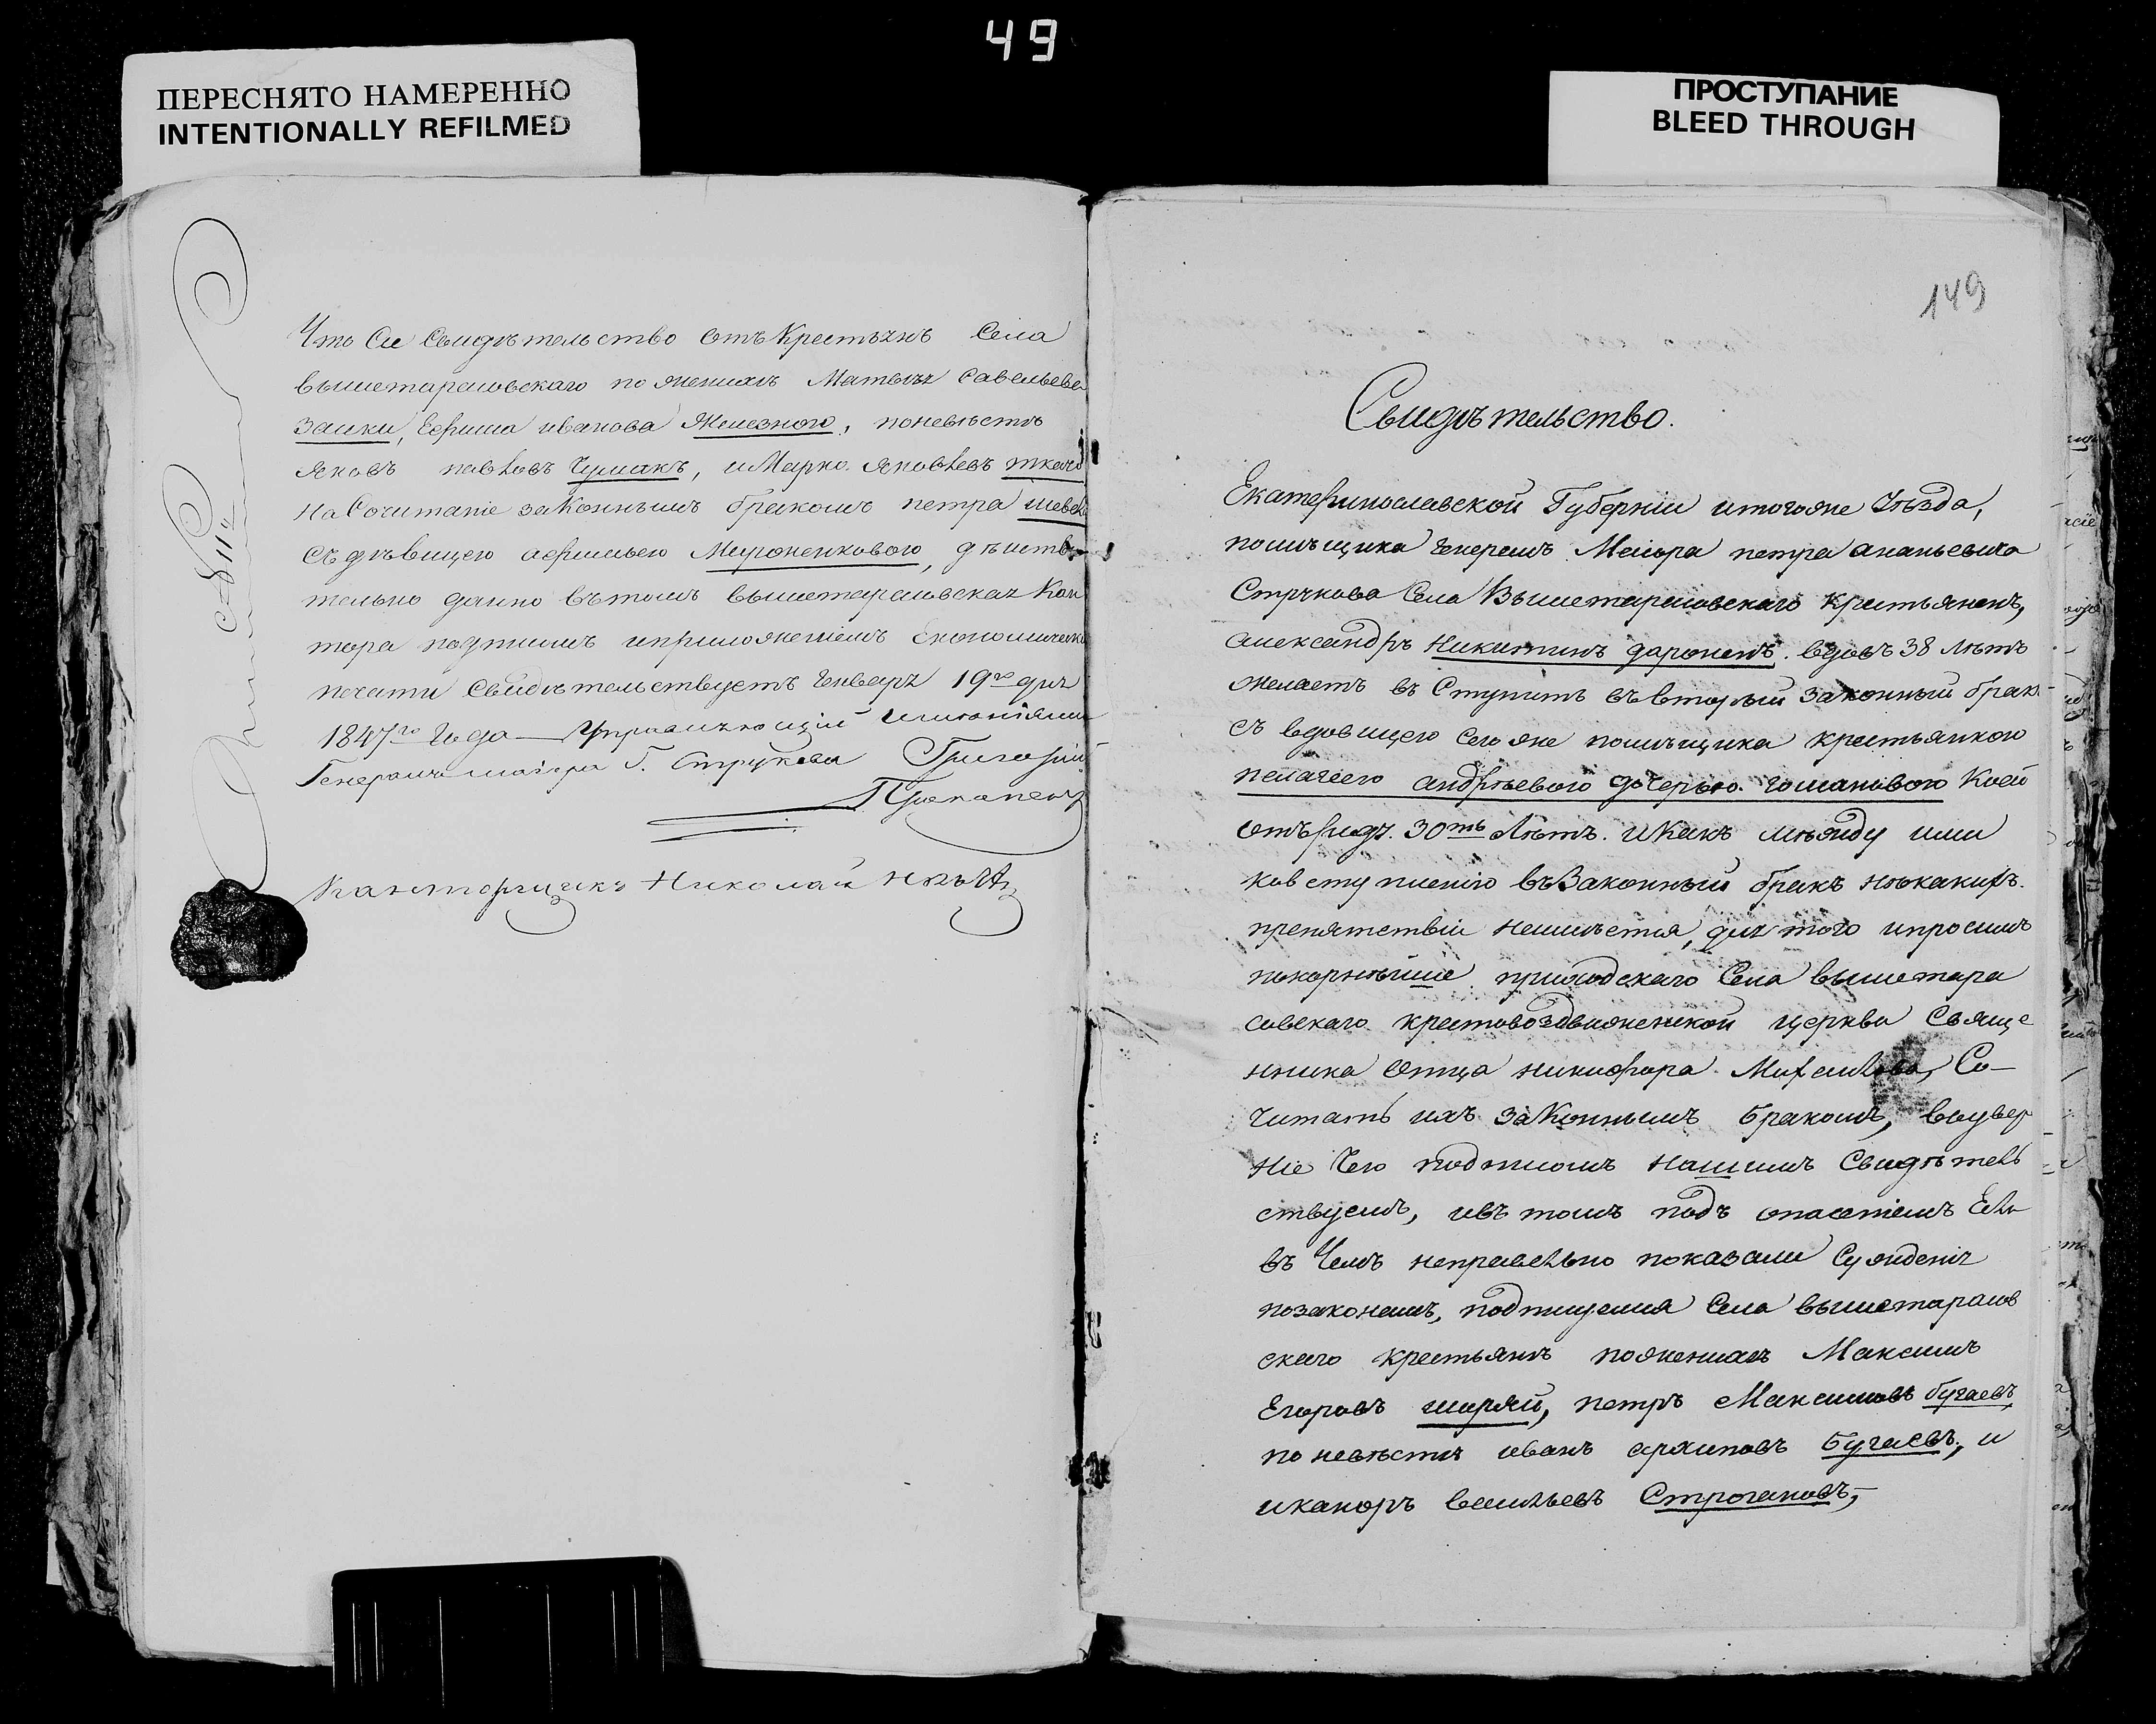 49
ПЕРЕСНЯТО НАМЕРЕННО
INTENTIONALLY REFILMED
ПРОСТУПАНИЕ
BLEED THROUGH
Что Сие Свидѣтельство отъ Крестьянъ Села
вышетарасовскаго по жениахъ Матвея Савельева
Заики, Ефима иванова Железного, поневѣстѣ
яковъ павловъ Чумакъ, и Марко Яковлевъ ткачь
на Сочитаніе законнымъ бракомъ петра
съ дѣвицею Мироненковою, дѣистви
тельно данно вътомъ вышетарасовская Кон
тора подписомъ иприложеніемъ Економическо
печати Свидѣтельствуетъ Генваря 19го дня
1847го Года Управляющій имѣніями
Генералъ маіора Г. Струкова Григорій
канторщикъ Николай
№ 11й
149
Свидѣтельство.
Екатеринославской Губерніи итогоже Уѣзда,
помѣщика Генералъ Маіора петра ананьевича
Струкова Села Вышетарасовскаго крестьянинъ,
александръ Никитинъ дароненъ. вдовъ 38 лѣтъ
желаетъ въ Ступить въвторый законный бракъ
съ вдовицею Сего же помѣщика крестьянкою
пелагеею андрѣевого дочерью гомановою Коей
отъ рида. 30ть Лѣтъ. и Какъ мѣжду ими
ковступленію въЗаконный бракъ нѣкакихъ.
препятствіи неимѣется, для того ипросимъ
покорнѣише приходскаго Села вышетара
совскаго крестовоздвиженской церкви Свяще
нника Отца никифора Михаилова, Со-
читать ихъ заКоннымъ бракомъ, воувер
ніе Чего подписомъ нашимъ Свидѣтель
ствуемъ, ивъ томъ подъ опасеніемъ Ели
въ Чемъ неправельно показали Сужденія
позаконамъ, подпищемся Села вышетарасов
скаго крестьянъ поженихѣ Максимъ
Егоровъ ширяй, петръ Максимовъ бугаевъ
по невѣстѣ иванъ архиповъ бугаевъ, и
иканоръ васильевъ Строгановъ,-